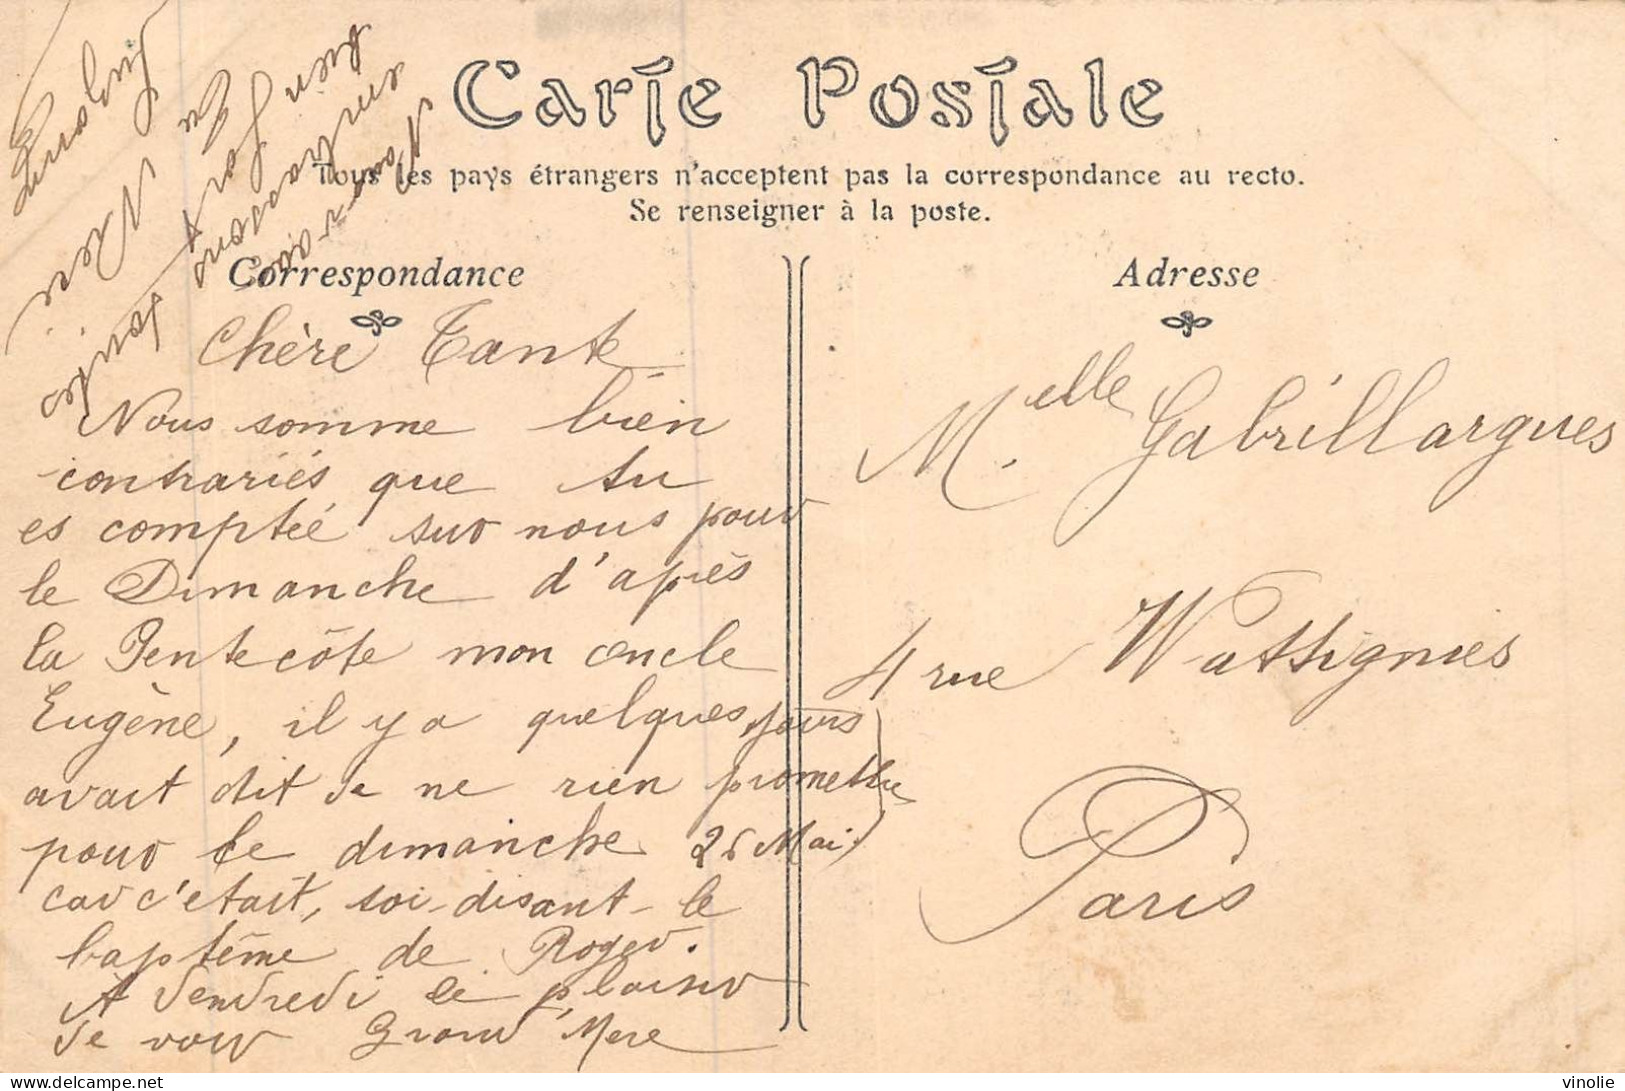 Carte Postale
Tous les pays étrangers n'acceptent pas la correspondance au recto.
Se renseigner à la poste.
Correspondance
Adresse
Chère Tante
Nous somme bien
contrariés que tu
es comptée sur nous pour
le Dimanche d'après
la Pentecôte mon oncle
Eugène, il y a quelques jours
avait dit de ne rien promettre
pour le dimanche 26 Mai.
car c'était, soi-disant le
baptême de Roger.
A Vendredi le plaisir
de voir Grand'Mère
Nous
toutes
Ta Nièce
M.elle Gabrillargues
4 rue Wattignies
Paris
delcampe.net
vinolie